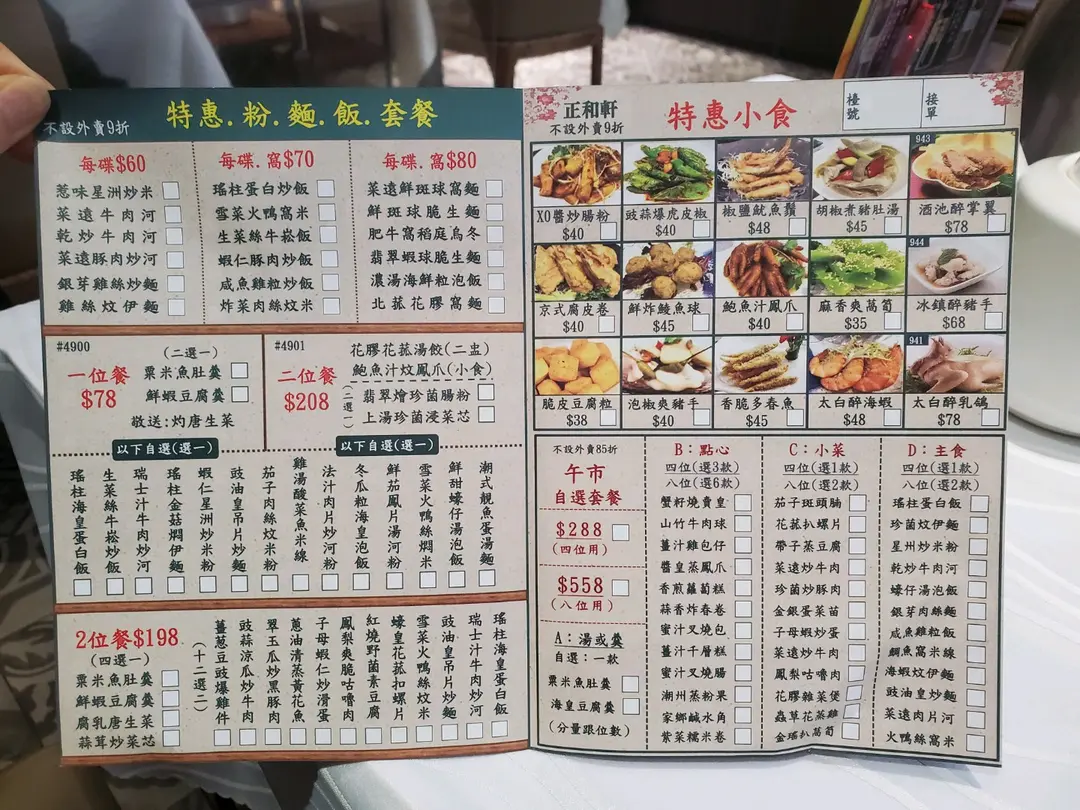 特惠.粉.麵.飯.套餐
不設外賣9折
每碟$60
惹味星洲炒米
菜遠牛肉河
乾炒牛肉河
菜遠豚肉炒河
銀芽雞絲炒麵
雞絲炆伊麵
每碟.窩$70
瑤柱蛋白炒飯
雪菜火鴨窩米
生菜絲牛崧飯
蝦仁豚肉炒飯
咸魚雞粒炒飯
炸菜肉絲炆米
每碟.窩$80
菜遠鮮斑球窩麵
鮮斑球脆生麵
肥牛窩稻庭烏冬
翡翠蝦球脆生麵
濃湯海鮮粒泡飯
北菰花膠窩麵
#4900
一位餐
$78
(二選一)
粟米魚肚羹
鮮蝦豆腐羹
敬送:灼唐生菜
#4901
二位餐
$208
花膠花菰湯餃(二盅)
鮑魚汁炆鳳爪(小食)
(二選一)
翡翠燴珍菌腸粉
上湯珍菌浸菜芯
以下自選(選一)
以下自選(選一)
瑤柱海皇蛋白飯
生菜絲牛崧炒飯
瑞士汁牛肉炒河
瑤柱金菇燜伊麵
蝦仁星洲炒米粉
豉油皇吊片炒麵
茄子肉絲炆米粉
雞湯酸菜魚米線
法汁肉片炒河粉
冬瓜粒海皇泡飯
鮮茄鳳片湯河粉
雪菜火鴨絲燜米
鮮甜蠔仔湯泡飯
潮式靚魚蛋湯麵
2位餐$198
(四選一)
粟米魚肚羹
鮮蝦豆腐羹
腐乳唐生菜
蒜茸炒菜芯
(十二選二)
薑葱豆豉爆雞件
豉蒜涼瓜炒牛肉
翠玉瓜炒黑豚肉
蔥油清蒸黃花魚
子母蝦仁炒滑蛋
鳳梨爽脆咕嚕肉
紅燒野菌素豆腐
蠔皇花菰扣螺片
雪菜火鴨絲炆米
豉油皇吊片炒麵
瑞士汁牛肉炒河
瑤柱海皇蛋白飯
正和軒
不設外賣9折
特惠小食
檯號
接單
XO醬炒腸粉
$40
豉蒜爆虎皮椒
$40
椒鹽魷魚鬚
$48
胡椒煮豬肚湯
$45
943
酒池醉掌翼
$78
京式腐皮卷
$40
鮮炸鯪魚球
$45
鮑魚汁鳳爪
$40
麻香爽萵筍
$35
944
冰鎮醉豬手
$68
脆皮豆腐粒
$38
泡椒爽豬手
$40
香脆多春魚
$45
太白醉海蝦
$48
941
太白醉乳鴿
$78
不設外賣85折
午市
自選套餐
$288
(四位用)
$558
(八位用)
A:湯或羹
自選:一款
粟米魚肚羹
海皇豆腐羹
(分量跟位數)
B:點心
四位(選3款)
八位(選6款)
蟹籽燒賣皇
山竹牛肉球
薑汁雞包仔
醬皇蒸鳳爪
香煎蘿蔔糕
蒜香炸春卷
蜜汁叉燒包
薑汁千層糕
蜜汁叉燒腸
潮州蒸粉果
家鄉鹹水角
紫菜糯米卷
C:小菜
四位(選1款)
八位(選2款)
茄子斑頭腩
花菰扒螺片
帶子蒸豆腐
菜遠炒牛肉
珍菌炒豚肉
金銀蛋菜苗
子母蝦炒蛋
菜遠炒牛肉
鳳梨咕嚕肉
花膠雜菜煲
蟲草花蒸雞
金瑤扒萵筍
D:主食
四位(選1款)
八位(選2款)
瑤柱蛋白飯
珍菌炆伊麵
星洲炒米粉
乾炒牛肉河
蠔仔湯泡飯
銀芽肉絲麵
咸魚雞粒飯
鯛魚窩米線
海蝦炆伊麵
豉油皇炒麵
菜遠肉片河
火鴨絲窩米